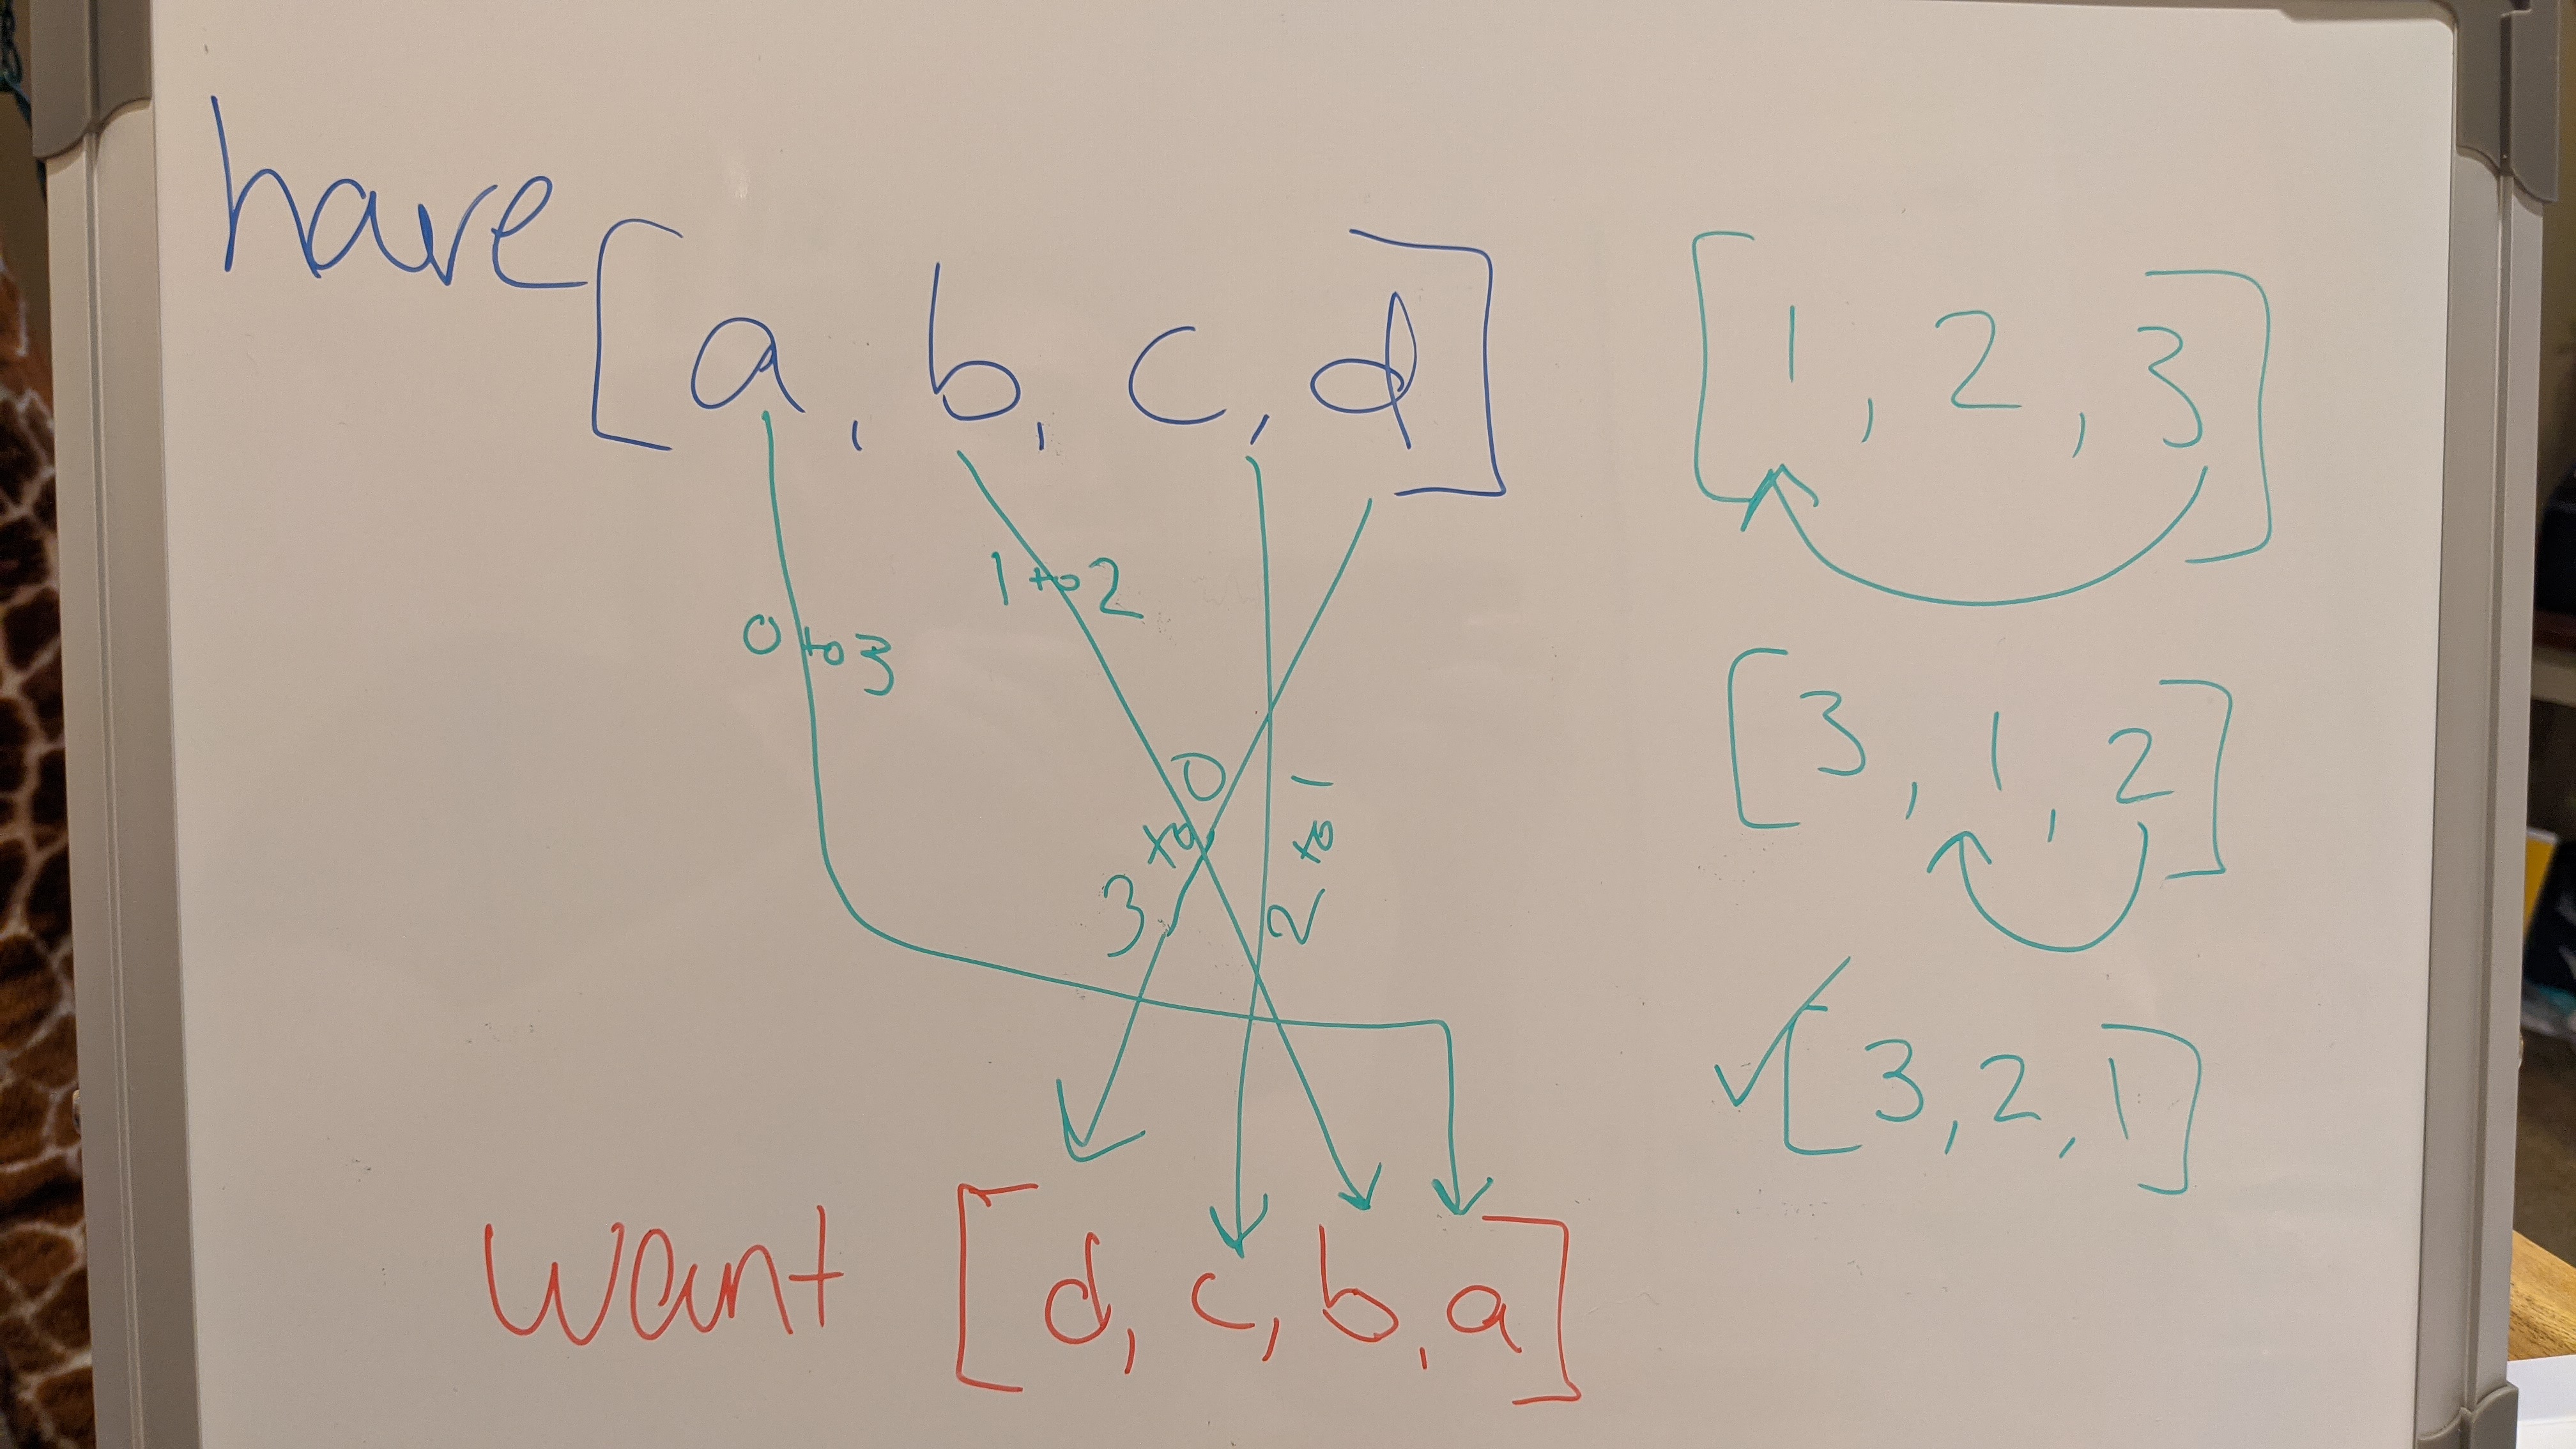 have [a, b, c, d]
0 to 3
1 to 2
3 to 0
2 to 1
want [d, c, b, a]
[1, 2, 3]
[3, 1, 2]
✓[3, 2, 1]